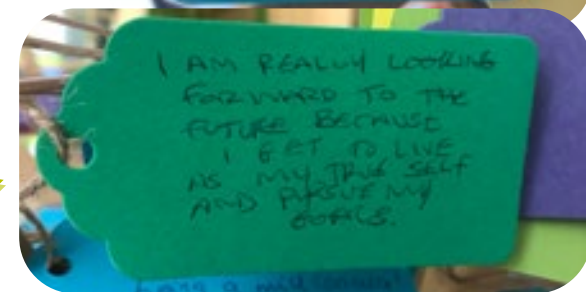 I AM REALLY LOOKING
FORWARD TO THE
FUTURE BECAUSE
I GET TO LIVE
AS MY TRUE SELF
AND PURSUE MY
GOALS.